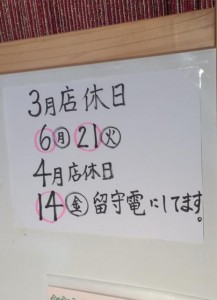 3月店休日
6㊊ 21㊋
4月店休日
14㊎ 留守電にしてます。